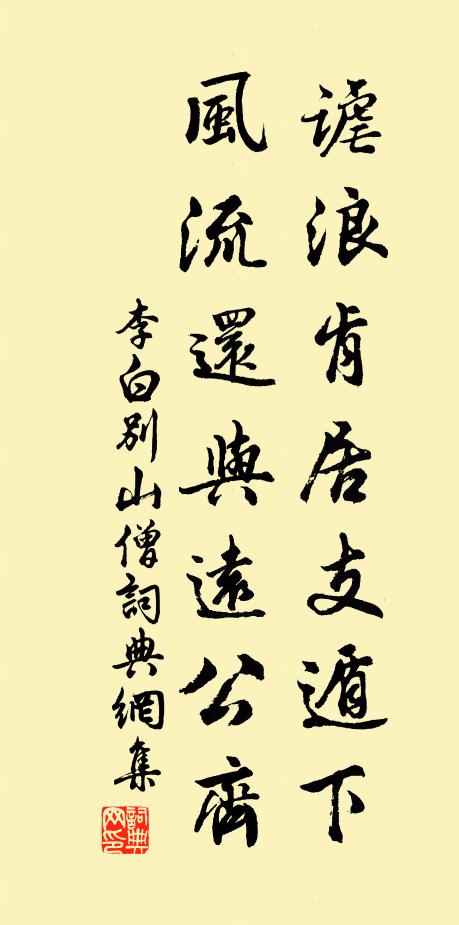 謔浪肯居支遁下
風流還與遠公齊
李白別山僧詞典網集
詞典網印